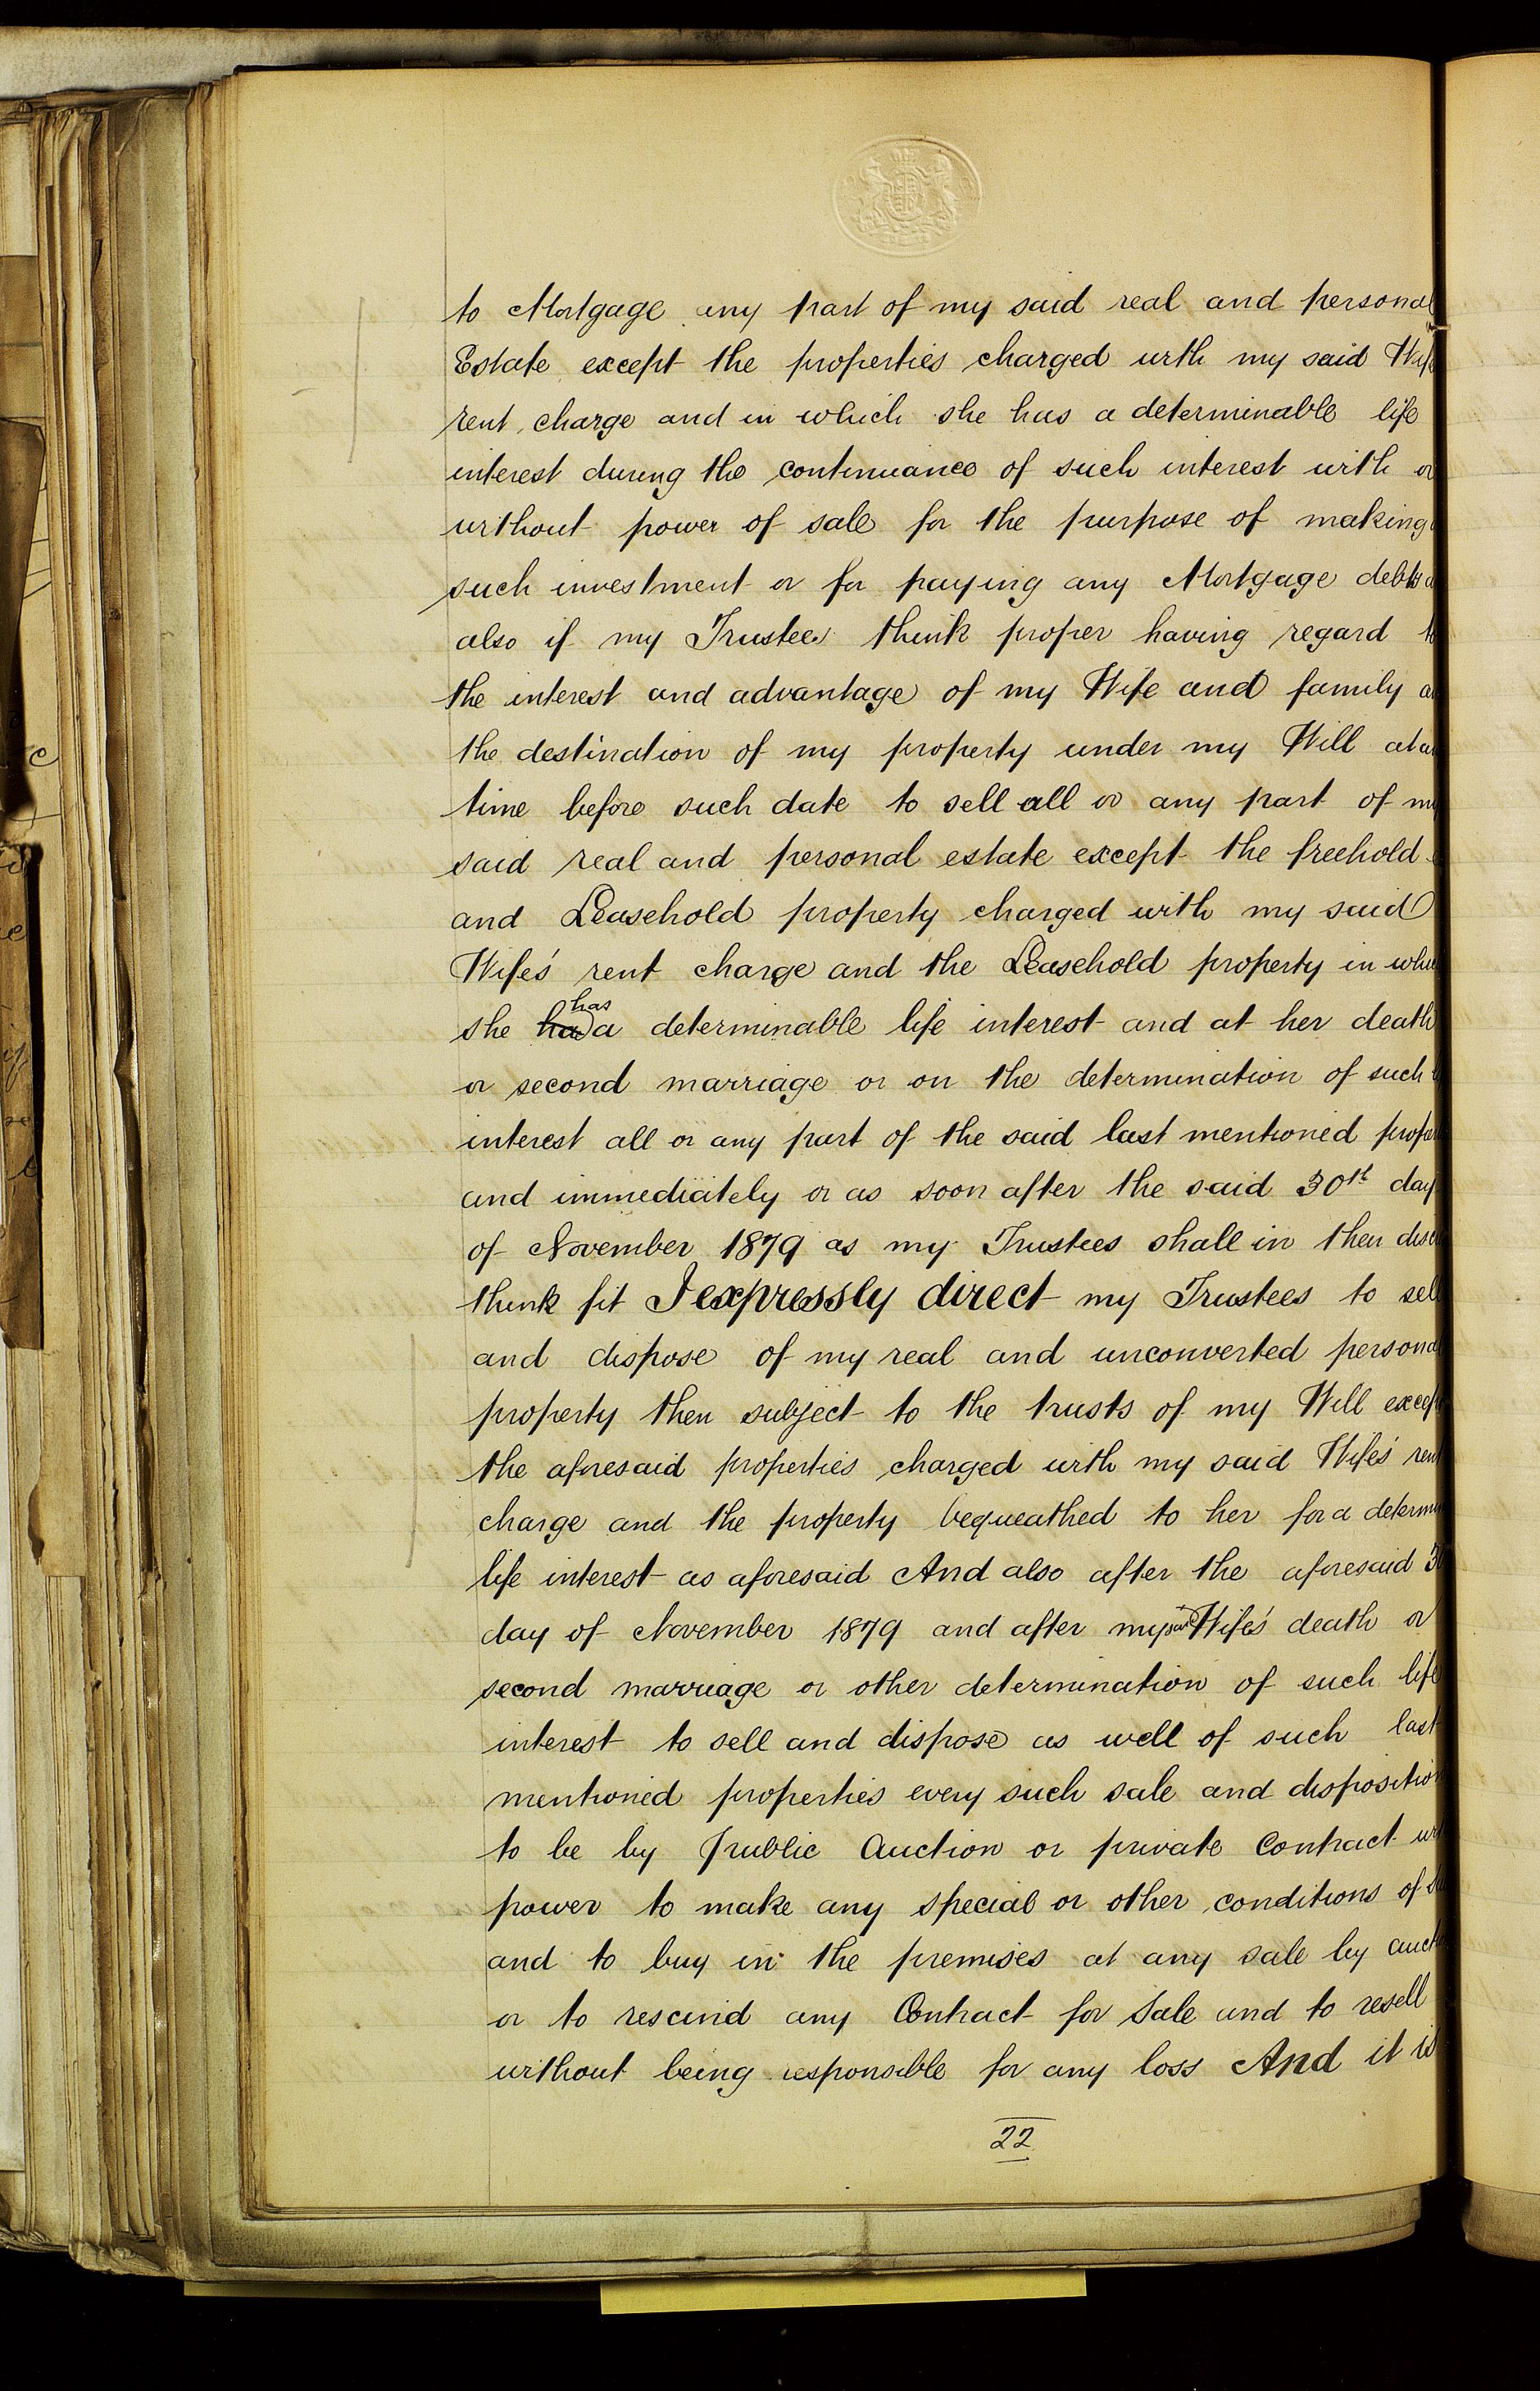 to Mortgage any part of my said real and personal
Estate except the properties charged with my said Wife
rent charge and in which she has a determinable life
interest during the continuance of such interest with or
without power of sale for the purpose of making
such investment or for paying any Mortgage debts
also if my Trustees think proper having regard to
the interest and advantage of my Wife and family
the destination of my property under my Will at
time before such date to sell all or any part of my
said real and personal estate except the freehold
and Leasehold property charged with my said
Wife's rent charge and the Leasehold property in
has
she ha a determinable life interest and at her death
or second marriage or on the determination of such
interest all or any part of the said last mentioned
and immediately or as soon after the said 30th day
of November 1879 as my Trustees shall in their
think fit I expressly direct my Trustees to sell
and dispose of my real and unconverted personal
property then subject to the trusts of my Will except
the aforesaid properties charged with my said Wife's rent
charge and the property bequeathed to her for a
life interest as aforesaid And also after the aforesaid
day of November 1879 and after my said Wife's death or
second marriage or other determination of such life
interest to sell and dispose as well of such last
mentioned properties every such sale and disposition
to be by public Auction or private Contract
power to make any special or other conditions of
and to buy in the premises at any sale by
or to rescind any Contract for Sale and to resell
without being responsible for any loss And it is
22